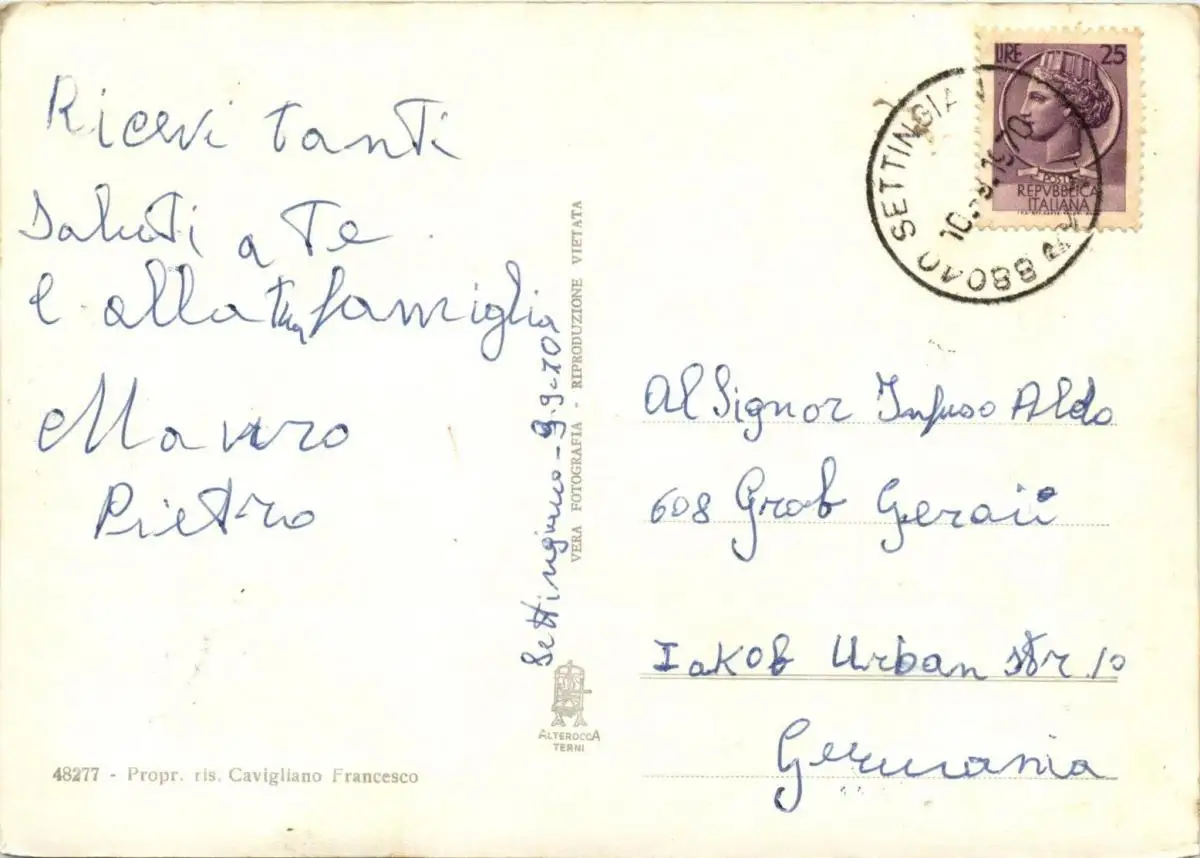 Ricevi tanti
Saluti a Te
e alla tua famiglia
Mauro
Pietro
48277 - Propr. ris. Cavigliano Francesco
Settingiano - 9-9-70
VERA FOTOGRAFIA - RIPRODUZIONE VIETATA
ALTEROCCA
TERNI
LIRE 25
POSTE
REPVBBLICA
ITALIANA
88040 SETTINGIA
1970
Al Signor Infuso Aldo
608 Grob Geraii
Iakob Urban str. 10
Germania